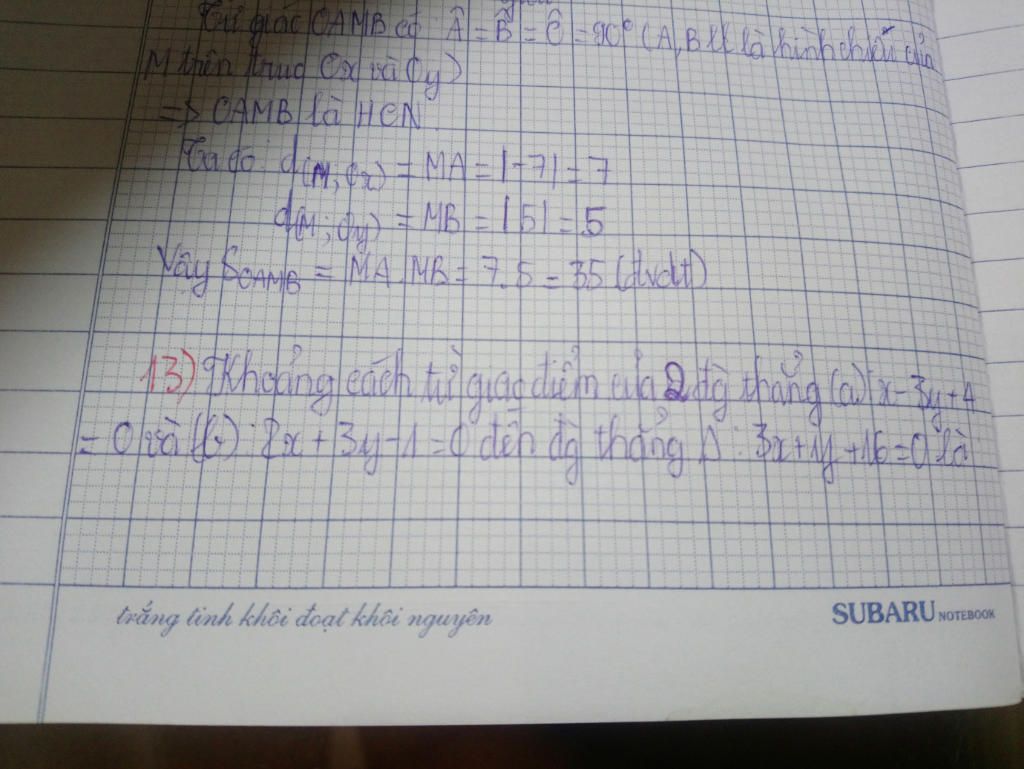 Tứ giác OAMB có Â = B̂ = Ô = 90° (A, B là hình chiếu của
M trên trục Ox và Oy)
=> OAMB là HCN
Ta có: d(M; Ox) = MA = |-7| = 7
d(M; Oy) = MB = |5| = 5
Vậy SOAMB = MA.MB = 7.5 = 35 (đvdt)
13) Khoảng cách từ giao điểm của 2 đg thẳng (a): x - 3y + 4
= 0 và (b): 2x + 3y - 1 = 0 đến đg thẳng Δ: 3x + 1y + 16 = 0 là
trắng tinh khôi đoạt khôi nguyên
SUBARU NOTEBOOK